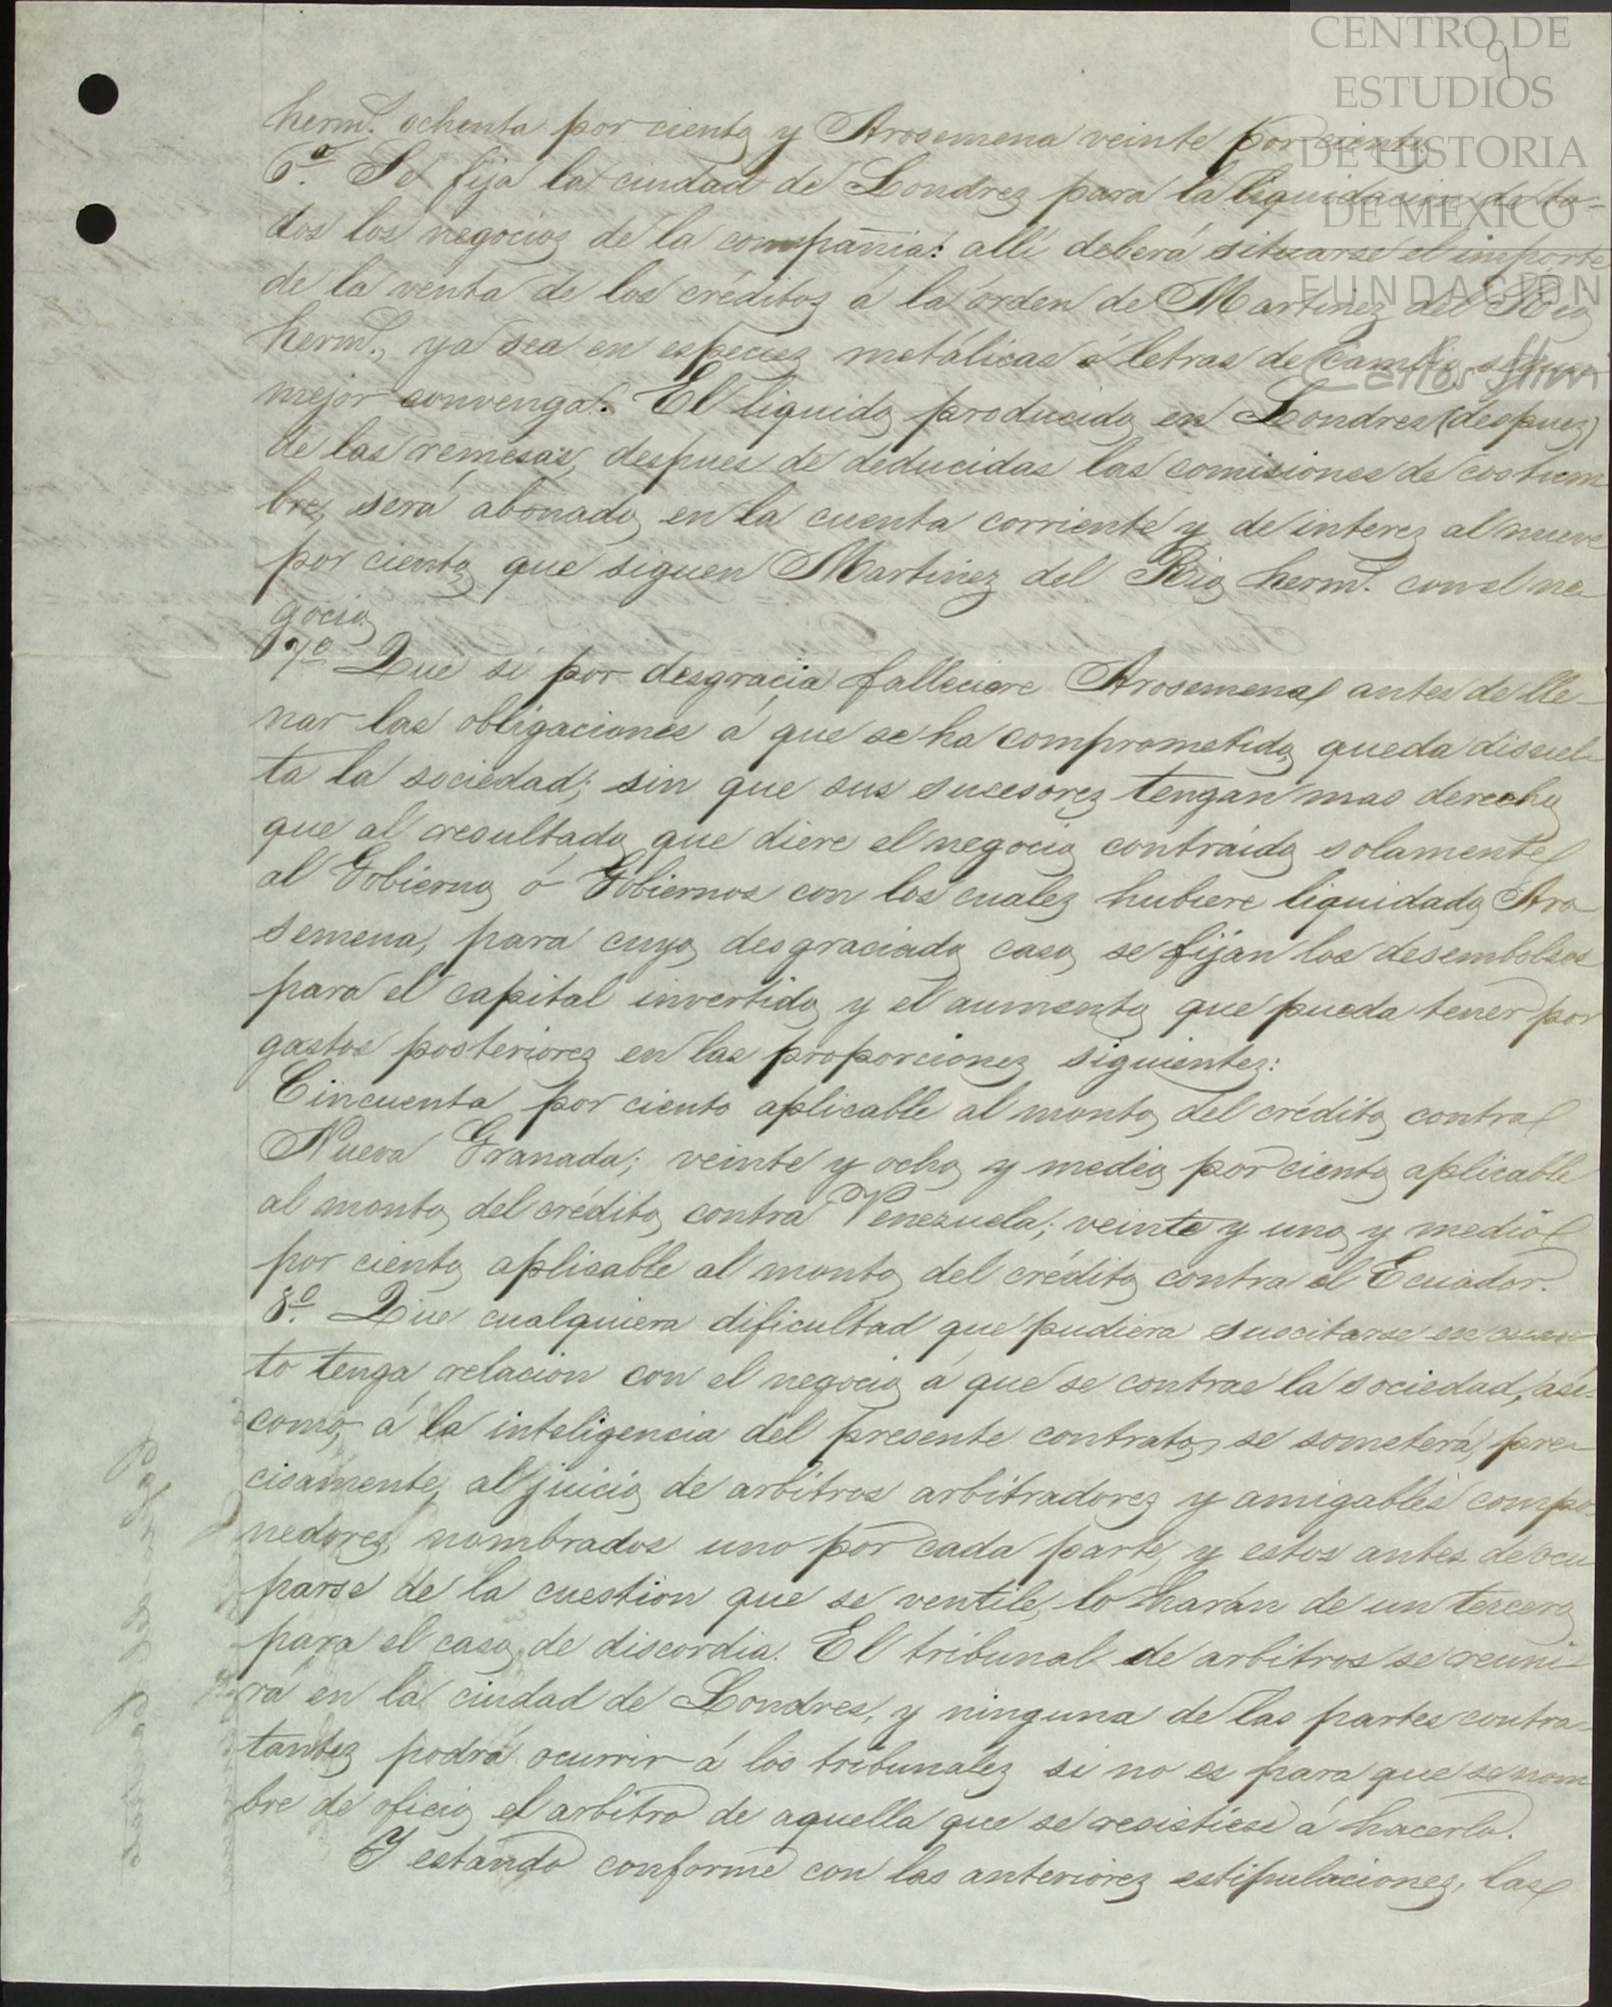 CENTRO DE
ESTUDIOS
DE HISTORIA
DE MÉXICO
FUNDACIÓN
Carlos Slim
9
herm.s ochenta por ciento y Arosemena veinte por ciento
6.a Se fija la ciudad de Londrez para la liquidacion de to-
dos los negocios de la compañia: alli deberá situarse el importe
de la venta de los créditos á la órden de Martinez del Rio
herm.s, ya sea en especies metálicas ó letras de cambio segun
mejor convenga. El liquido producido en Londres (despues)
de las remesas, despues de deducidas las comisiones de costum
bre, será abonado en la cuenta corriente y de interes al nueve
por ciento que siguen Martinez del Rio herm.s con el ne-
gocio
7.a Que si por desgracia falleciere Arosemena antes de lle-
nar las obligaciones á que se ha comprometido, queda disuel-
ta la sociedad; sin que sus sucesorez tengan mas derecho
que al resultado que diere el negocio contraido solamente
al Gobierno ó Gobiernos con los cualez hubiere liquidado Aro-
semena, para cuyo desgraciado caso se fijan los desembolsos
para el capital invertido y el aumento que pueda tener por
gastos posteriorez en las proporcionez siguientez:
Cincuenta por ciento aplicable al monto del crédito contra
Nueva Granada; veinte y ocho y medio por ciento aplicable
al monto del crédito contra Venezuela; veinte y uno y medio
por ciento aplicable al monto del crédito contra el Ecuador.
8.a Que cualquiera dificultad que pudiera suscitarse en cuan
to tenga relacion con el negocio á que se contrae la sociedad, asi
como á la inteligencia del presente contrato, se someterá, pre-
cisamente, al juicio de arbitros arbitradorez y amigables compo-
nedorez, nombrados uno por cada parte, y estos antes de ocu
parse de la cuestion que se ventile, lo harán de un tercero
para el caso de discordia. El tribunal de arbitros se reuni-
rá en la ciudad de Londres, y ninguna de las partes contra-
tantez podrá ocurrir á los tribunalez si no es para que se nom
bre de oficio el arbitro de aquella que se resistiese á hacerlo.
Y estando conforme con las anteriorez estipulacionez, las